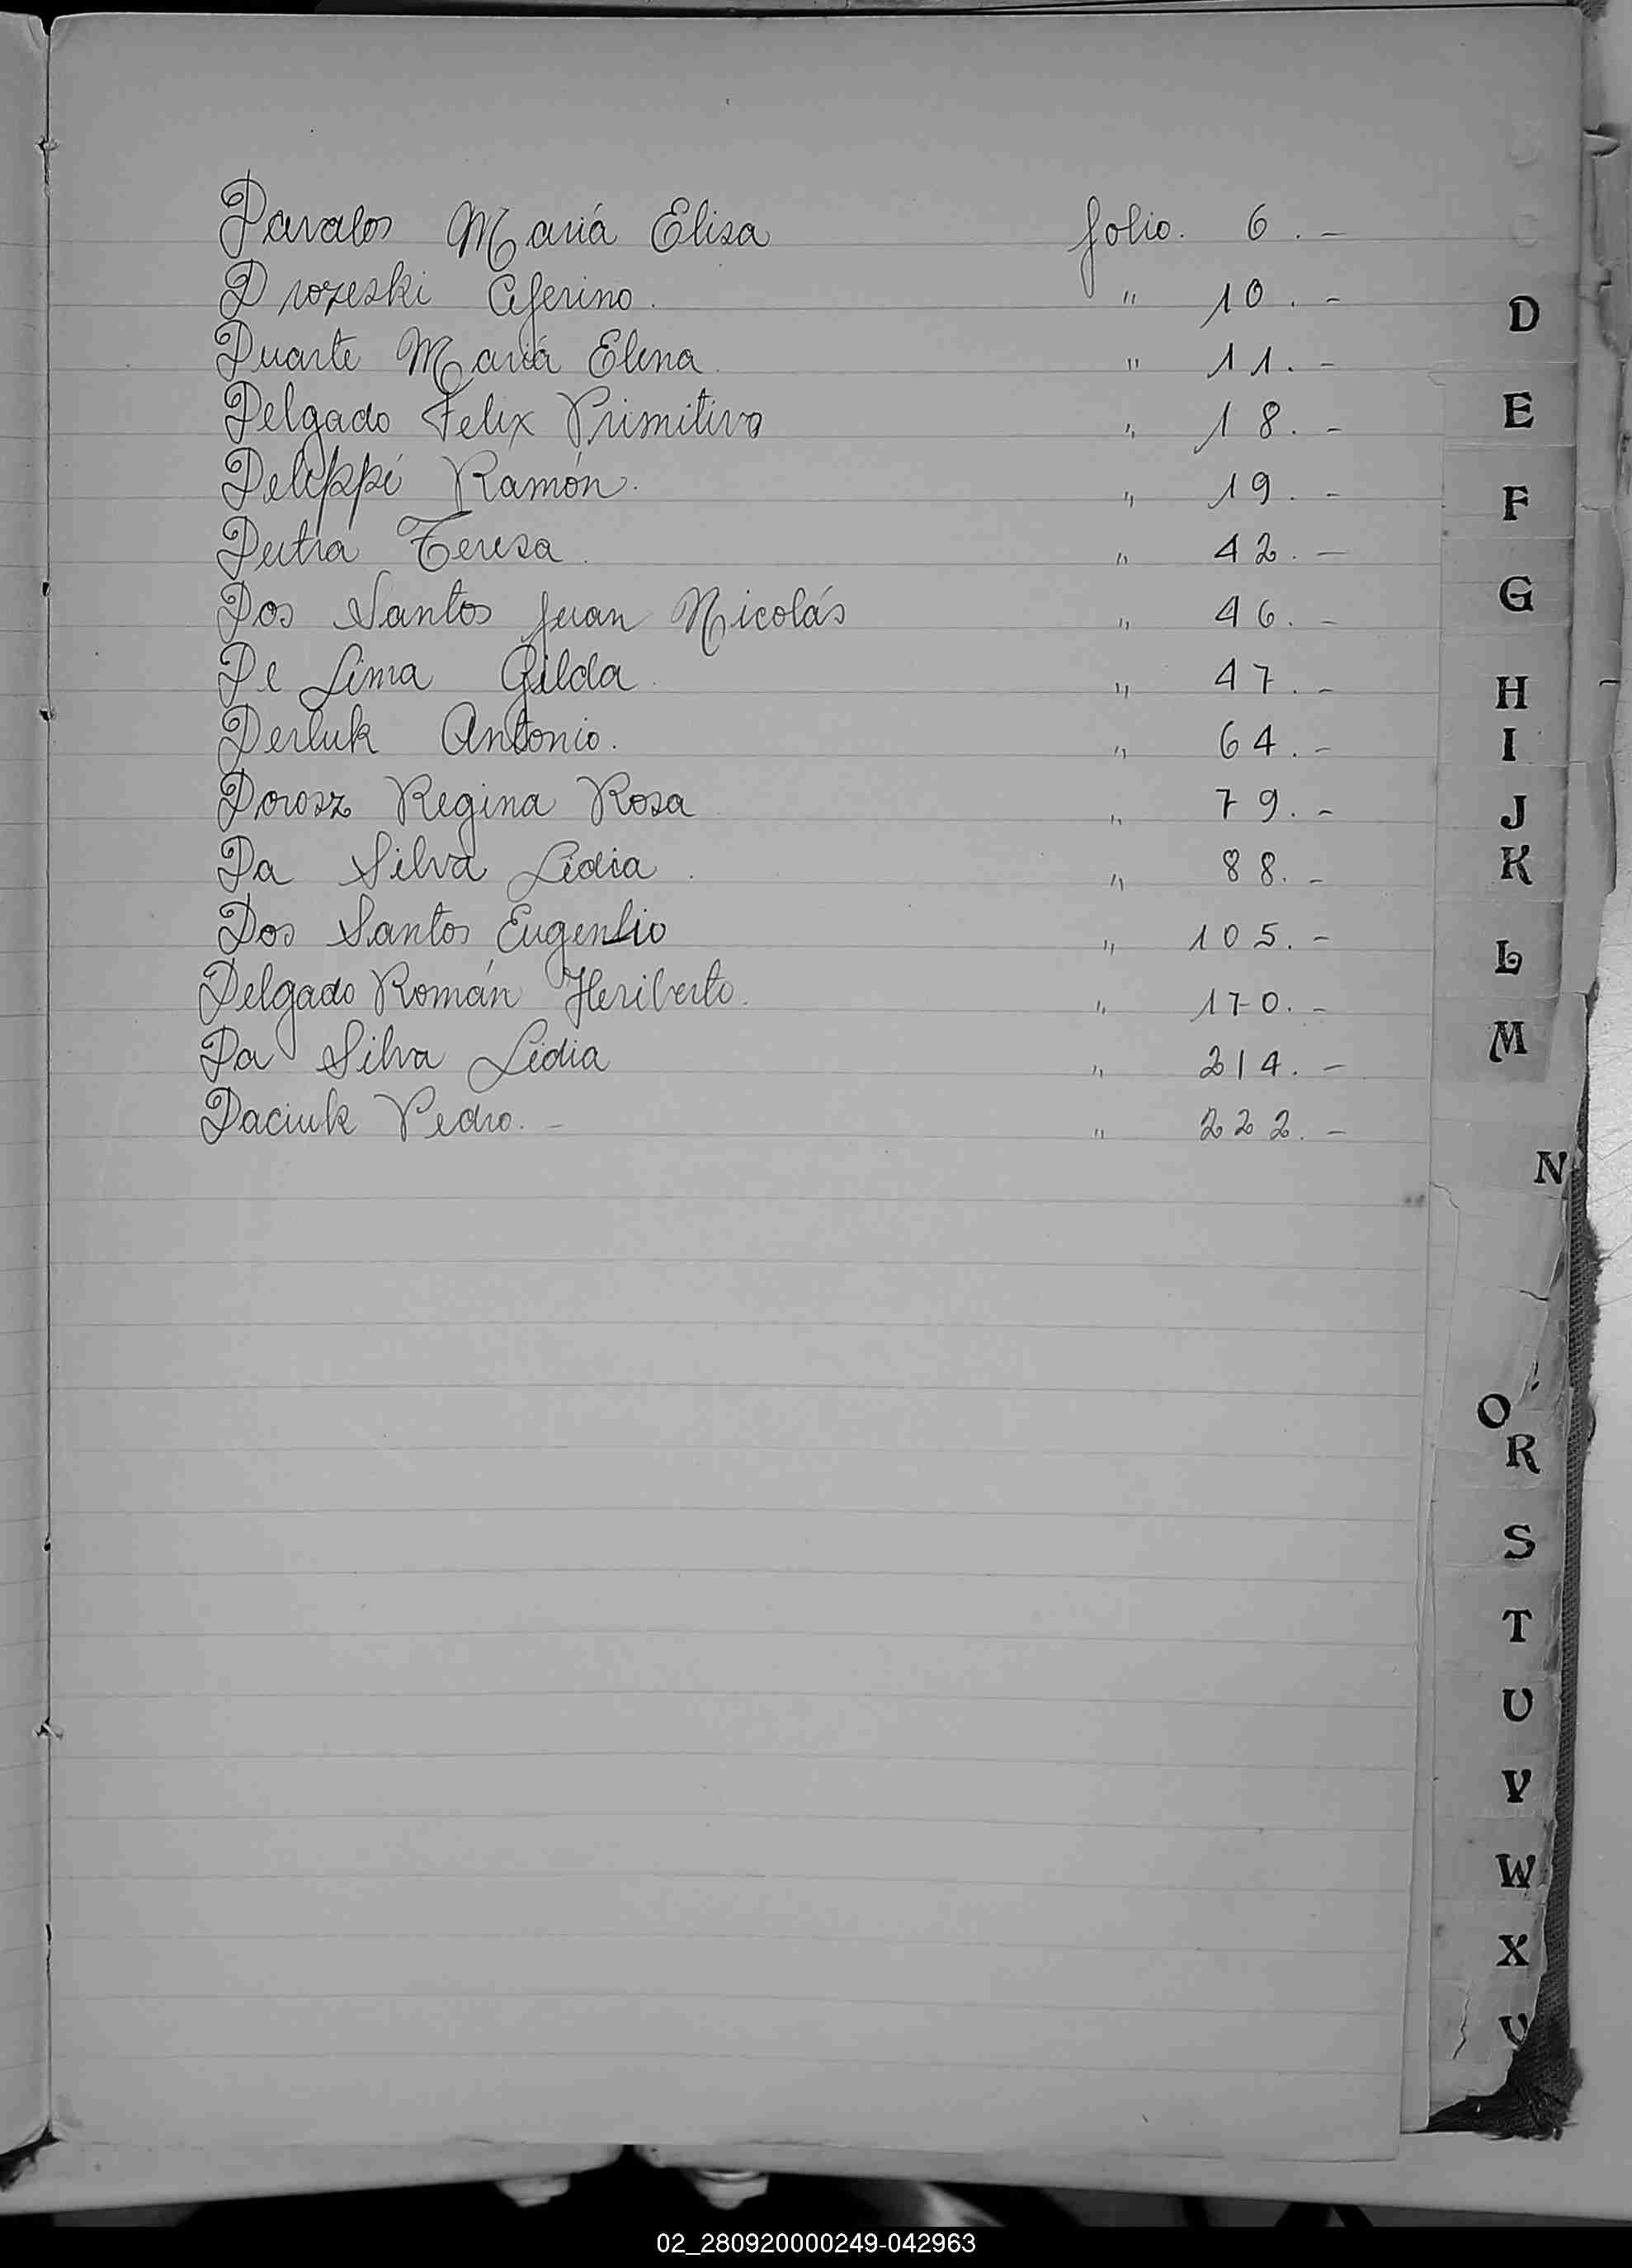 Davalos Mariá Elisa folio. 6.-
Drozeski Ceferino. " 10.-
Duarte Mariá Elena. " 11.-
Delgado Felix Primitivo " 18.-
Delippi Ramón. " 19.-
Dutra Teresa. " 42.-
Dos Santos Juan Nicolás " 46.-
De Lima Gilda. " 47.-
Derluk Antonio. " 64.-
Dorosz Regina Rosa " 79.-
Da Silva Lidia. " 88.-
Dos Santos Eugenio " 105.-
Delgado Román Heriberto. " 170.-
Da Silva Lidia " 214.-
Daciuk Pedro.- " 222.-
D
E
F
G
H
I
J
K
L
M
N
O
R
S
T
U
V
W
X
02_280920000249-042963